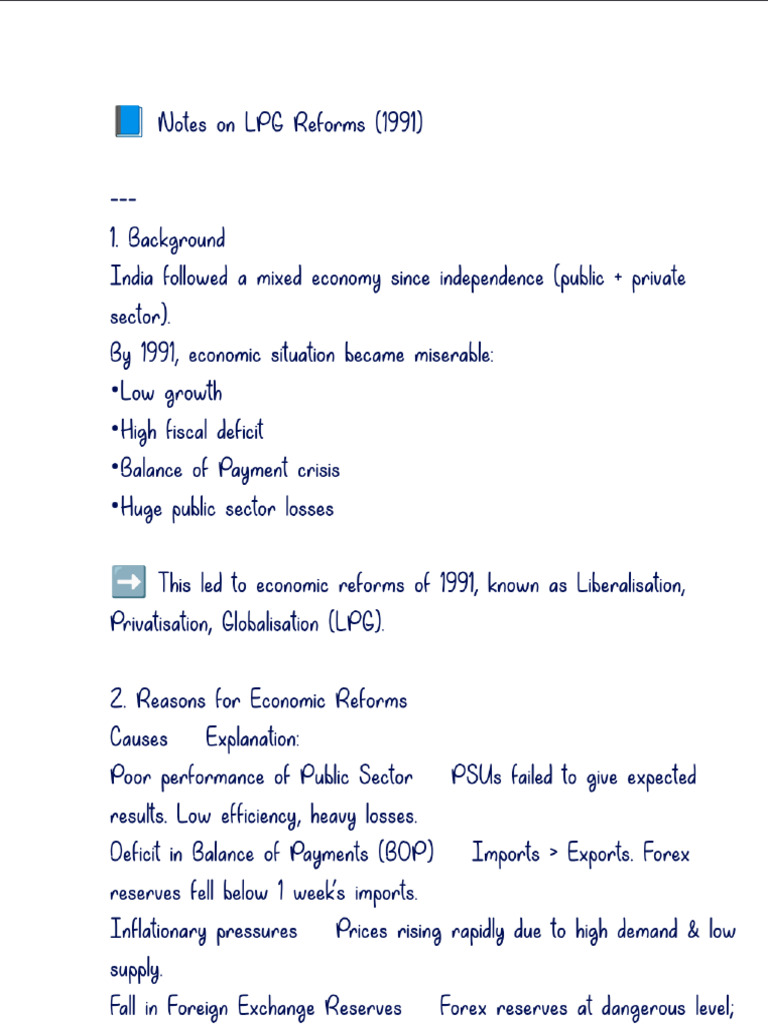 📘 Notes on LPG Reforms (1991)
---
1. Background
India followed a mixed economy since independence (public + private
sector).
By 1991, economic situation became miserable:
•Low growth
•High fiscal deficit
•Balance of Payment crisis
•Huge public sector losses
➡️ This led to economic reforms of 1991, known as Liberalisation,
Privatisation, Globalisation (LPG).
2. Reasons for Economic Reforms
Causes Explanation:
Poor performance of Public Sector PSUs failed to give expected
results. Low efficiency, heavy losses.
Deficit in Balance of Payments (BOP) Imports > Exports. Forex
reserves fell below 1 week's imports.
Inflationary pressures Prices rising rapidly due to high demand & low
supply.
Fall in Foreign Exchange Reserves Forex reserves at dangerous level;